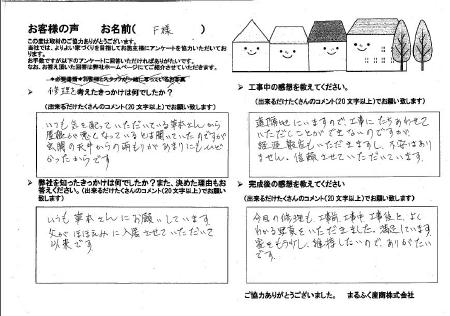 お客様の声　お名前（　F様　）
この度は取材のご協力ありがとうございます。
当社では、よりよい家づくりを目指してお施主様にアンケートを協力いただいております。
お手数ですが以下のアンケートに回答いただければありがたいです。
なお、お答え頂いた回答は弊社ホームページにてご紹介させていただきます。
➤ 修理を考えたきっかけは何でしたか？
(出来るだけたくさんのコメント(20文字以上)でお願い致します)
いつも気を配っていただいている
屋根が悪くなっているとは聞いていたのですが
玄関の天井からの雨もりがあまりにもひど
かったからです
➤ 弊社を知ったきっかけは何でしたか？また、決めた理由もお
答えください。(出来るだけたくさんのコメント(20文字以上)でお願い
致します)
いつも さんにお願いしています
父がほほえみに入居させていただいて
以来です
➤ 工事中の感想を教えてください。
(出来るだけたくさんのコメント(20文字以上)でお願い致します)
遠隔地にいますので、工事に立ちあわせて
いただくことができないのですが、
経過報告もいただきますし、不安はあり
ません。信頼させていただいています。
➤ 完成後の感想を教えてください
(出来るだけたくさんのコメント(20文字以上)でお願い致します)
今回の修理も、工事前、工事中、工事後と、よく
わかる写真をいただきました。満足しています
家をもう少し、維持したいので、ありがたい
です。
ご協力ありがとうございました。　まるふく産商株式会社